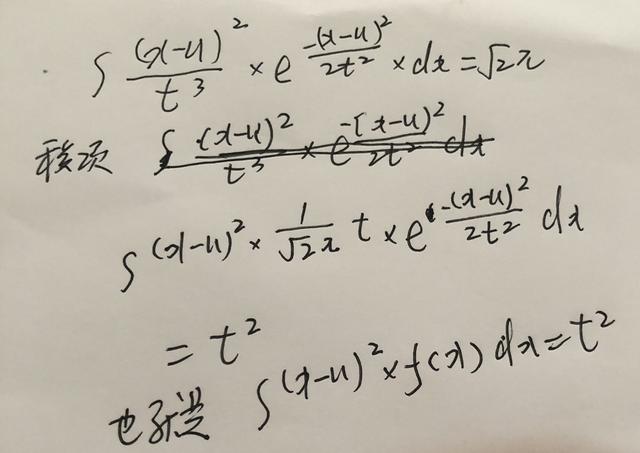 ∫ (x-u)²/t³ × e^(-(x-u)²/2t²) × dx = √2π
移项 ∫ (x-u)²/t³ × e^(-(x-u)²/2t²) dx
∫ (x-u)² × 1/√2π t × e^(-(x-u)²/2t²) dx
= t²
也就是 ∫ (x-u)² × f(x) dx = t²